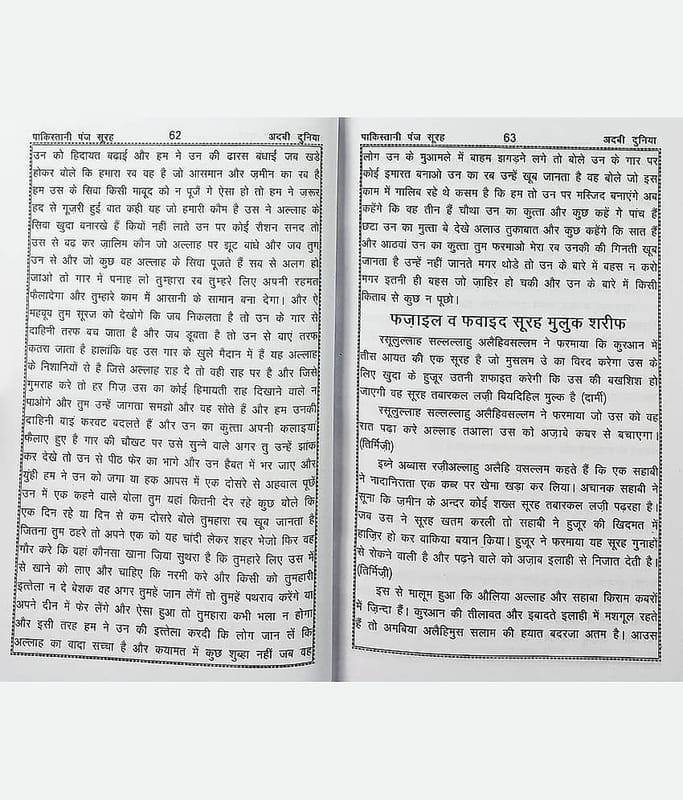 पाकिस्तानी पंज सूरह 62 अदबी दुनिया
उन को हिदायत बढ़ाई और हम ने उन की ढारस बंधाई जब खडे
होकर बोले कि हमारा रब वह है जो आसमान और ज़मीन का रब है
हम उस के सिवा किसी माबूद को न पूजें गे ऐसा हो तो हम ने जरूर
हद से गूजरी हुई बात कही यह जो हमारी कौम है उस ने अल्लाह के
सिवा खुदा बनारखे हैं कियों नहीं लाते उन पर कोई रौशन सनद तो
उस से बढ़ कर ज़ालिम कौन जो अल्लाह पर झूट बांधे और जब तुम
उन से और जो कुछ वह अल्लाह के सिवा पूजते हैं सब से अलग हो
जाओ तो गार में पनाह लो तुम्हारा रब तुम्हरे लिए अपनी रहमत
फैलादेगा और तुम्हारे काम में आसानी के सामान बना देगा। और ऐ
महबूब तुम सूरज को देखोगे कि जब निकलता है तो उन के गार से
दाहिनी तरफ बच जाता है और जब डूबता है तो उन से बाएं तरफ
कतरा जाता है हालांकि वह उस गार के खुले मैदान में हैं यह अल्लाह
के निशानियों से है जिसे अल्लाह राह दे तो वही राह पर है और जिसे
गुमराह करे तो हर गिज़ उस का कोई हिमायती राह दिखाने वाले न
पाओगे और तुम उन्हें जागता समझो और यह सोते हैं और हम उनकी
दाहिनी बाइं करवट बदलते हैं और उन का कुत्ता अपनी कलाइया
फैलाए हुए है गार की चौखट पर उसे सुन्ने वाले अगर तु उन्हें झांक
कर देखे तो उन से पीठ फेर का भागे और उन हैबत में भर जाए और
यूंही हम ने उन को जगा या हक आपस में एक दोसरे से अहवाल पूछें
उन में एक कहने वाले बोला तुम यहां कितनी देर रहे कुछ बोले कि
एक दिन रहे या दिन से कम दोसरे बोले तुमहारा रब खूब जानता है
जितना तुम ठहरे तो अपने एक को यह चांदी लेकर शहर भेजो फिर वह
गौर करे कि वहां कौनसा खाना ज़िया सुथरा है कि तुमहारे लिए उस में
से खाने को लाए और चाहिए कि नरमी करे और किसी को तुमहारी
इत्तेला न दे बेशक वह अगर तुमहें जान लेंगें तो तुमहें पथराव करेंगे या
अपने दीन में फेर लेंगे और ऐसा हुआ तो तुमहारा कभी भला न होगा
और इसी तरह हम ने उन की इत्तेला करदी कि लोग जान लें कि
अल्लाह का वादा सच्चा है और कयामत में कुछ शुब्हा नहीं जब वह
पाकिस्तानी पंज सूरह 63 अदबी दुनिया
लोग उन के मुआमले में बाहम झगड़ने लगे तो बोले उन के गार पर
कोई इमारत बनाओ उन का रब उन्हें खूब जानता है वह बोले जो इस
काम में गालिब रहे थे कसम है कि हम तो उन पर मस्जिद बनाएंगे अब
कहेंगे कि वह तीन हैं चौथा उन का कुत्ता और कुछ कहें गे पांच हैं
छटा उन का मुत्ता बे देखे अलाउ तुकाबात और कुछ कहेंगि कि सात हैं
और आठवां उन का कुत्ता तुम फरमाओ मेरा रब उनकी की गिनती खूब
जानता है उन्हें नहीं जानते मगर थोडे तो उन के बारे में बहस न करो
मगर इतनी ही बहस जो ज़ाहिर हो चकी और उन के बारे में किसी
किताब से कुछ न पूछो।
फज़ाइल व फवाइद सूरह मुलुक शरीफ
रसूलुल्लाह सल्लल्लाहु अलैहिवसल्लम ने फरमाया कि कुरआन में
तीस आयत की एक सूरह है जो मुसलम उ का विरद करेगा उस के
लिए खुदा के हुजूर उतनी शफाइत करेगी कि उस की बखशिश हो
जाएगी वह सूरह तबारकल लज़ी बियदिहिल मुल्क है (दार्मी)
रसूलुल्लाह सल्लल्लाहु अलैहिवसल्लम ने फरमाया जो उस को वह
रात पढ़ा करे अल्लाह तआला उस को अज़ाबे कबर से बचाएगा।
(तिर्मिज़ी)
इब्ने अब्बास रज़ीअल्लाहु अलैहि वसल्लम कहते हैं कि एक सहाबी
ने नादानिसता एक कब्र पर खेमा खड़ा कर लिया। अचानक सहाबी ने
सूना कि ज़मीन के अन्दर कोई शख्स सूरह तबारकल लज़ी पढ़रहा है।
जब उस ने सूरह खतम करली तो सहाबी ने हुजूर की खिदमत में
हाज़िर हो कर वाकिया बयान किया। हुजूर ने फरमाया यह सूरह गुनाहों
से रोकने वाली है और पढ़ने वाले को अज़ाब इलाही से निजात देती है।
(तिर्मिज़ी)
इस से मालूम हुआ कि औलिया अल्लाह और सहाबा किराम कबरों
में ज़िन्दा हैं। कुरआन की तीलावत और इबादते इलाही में मशगूल रहते
हैं तो अमबिया अलैहिमुस सलाम की हयात बदरजा अतम है। आउस